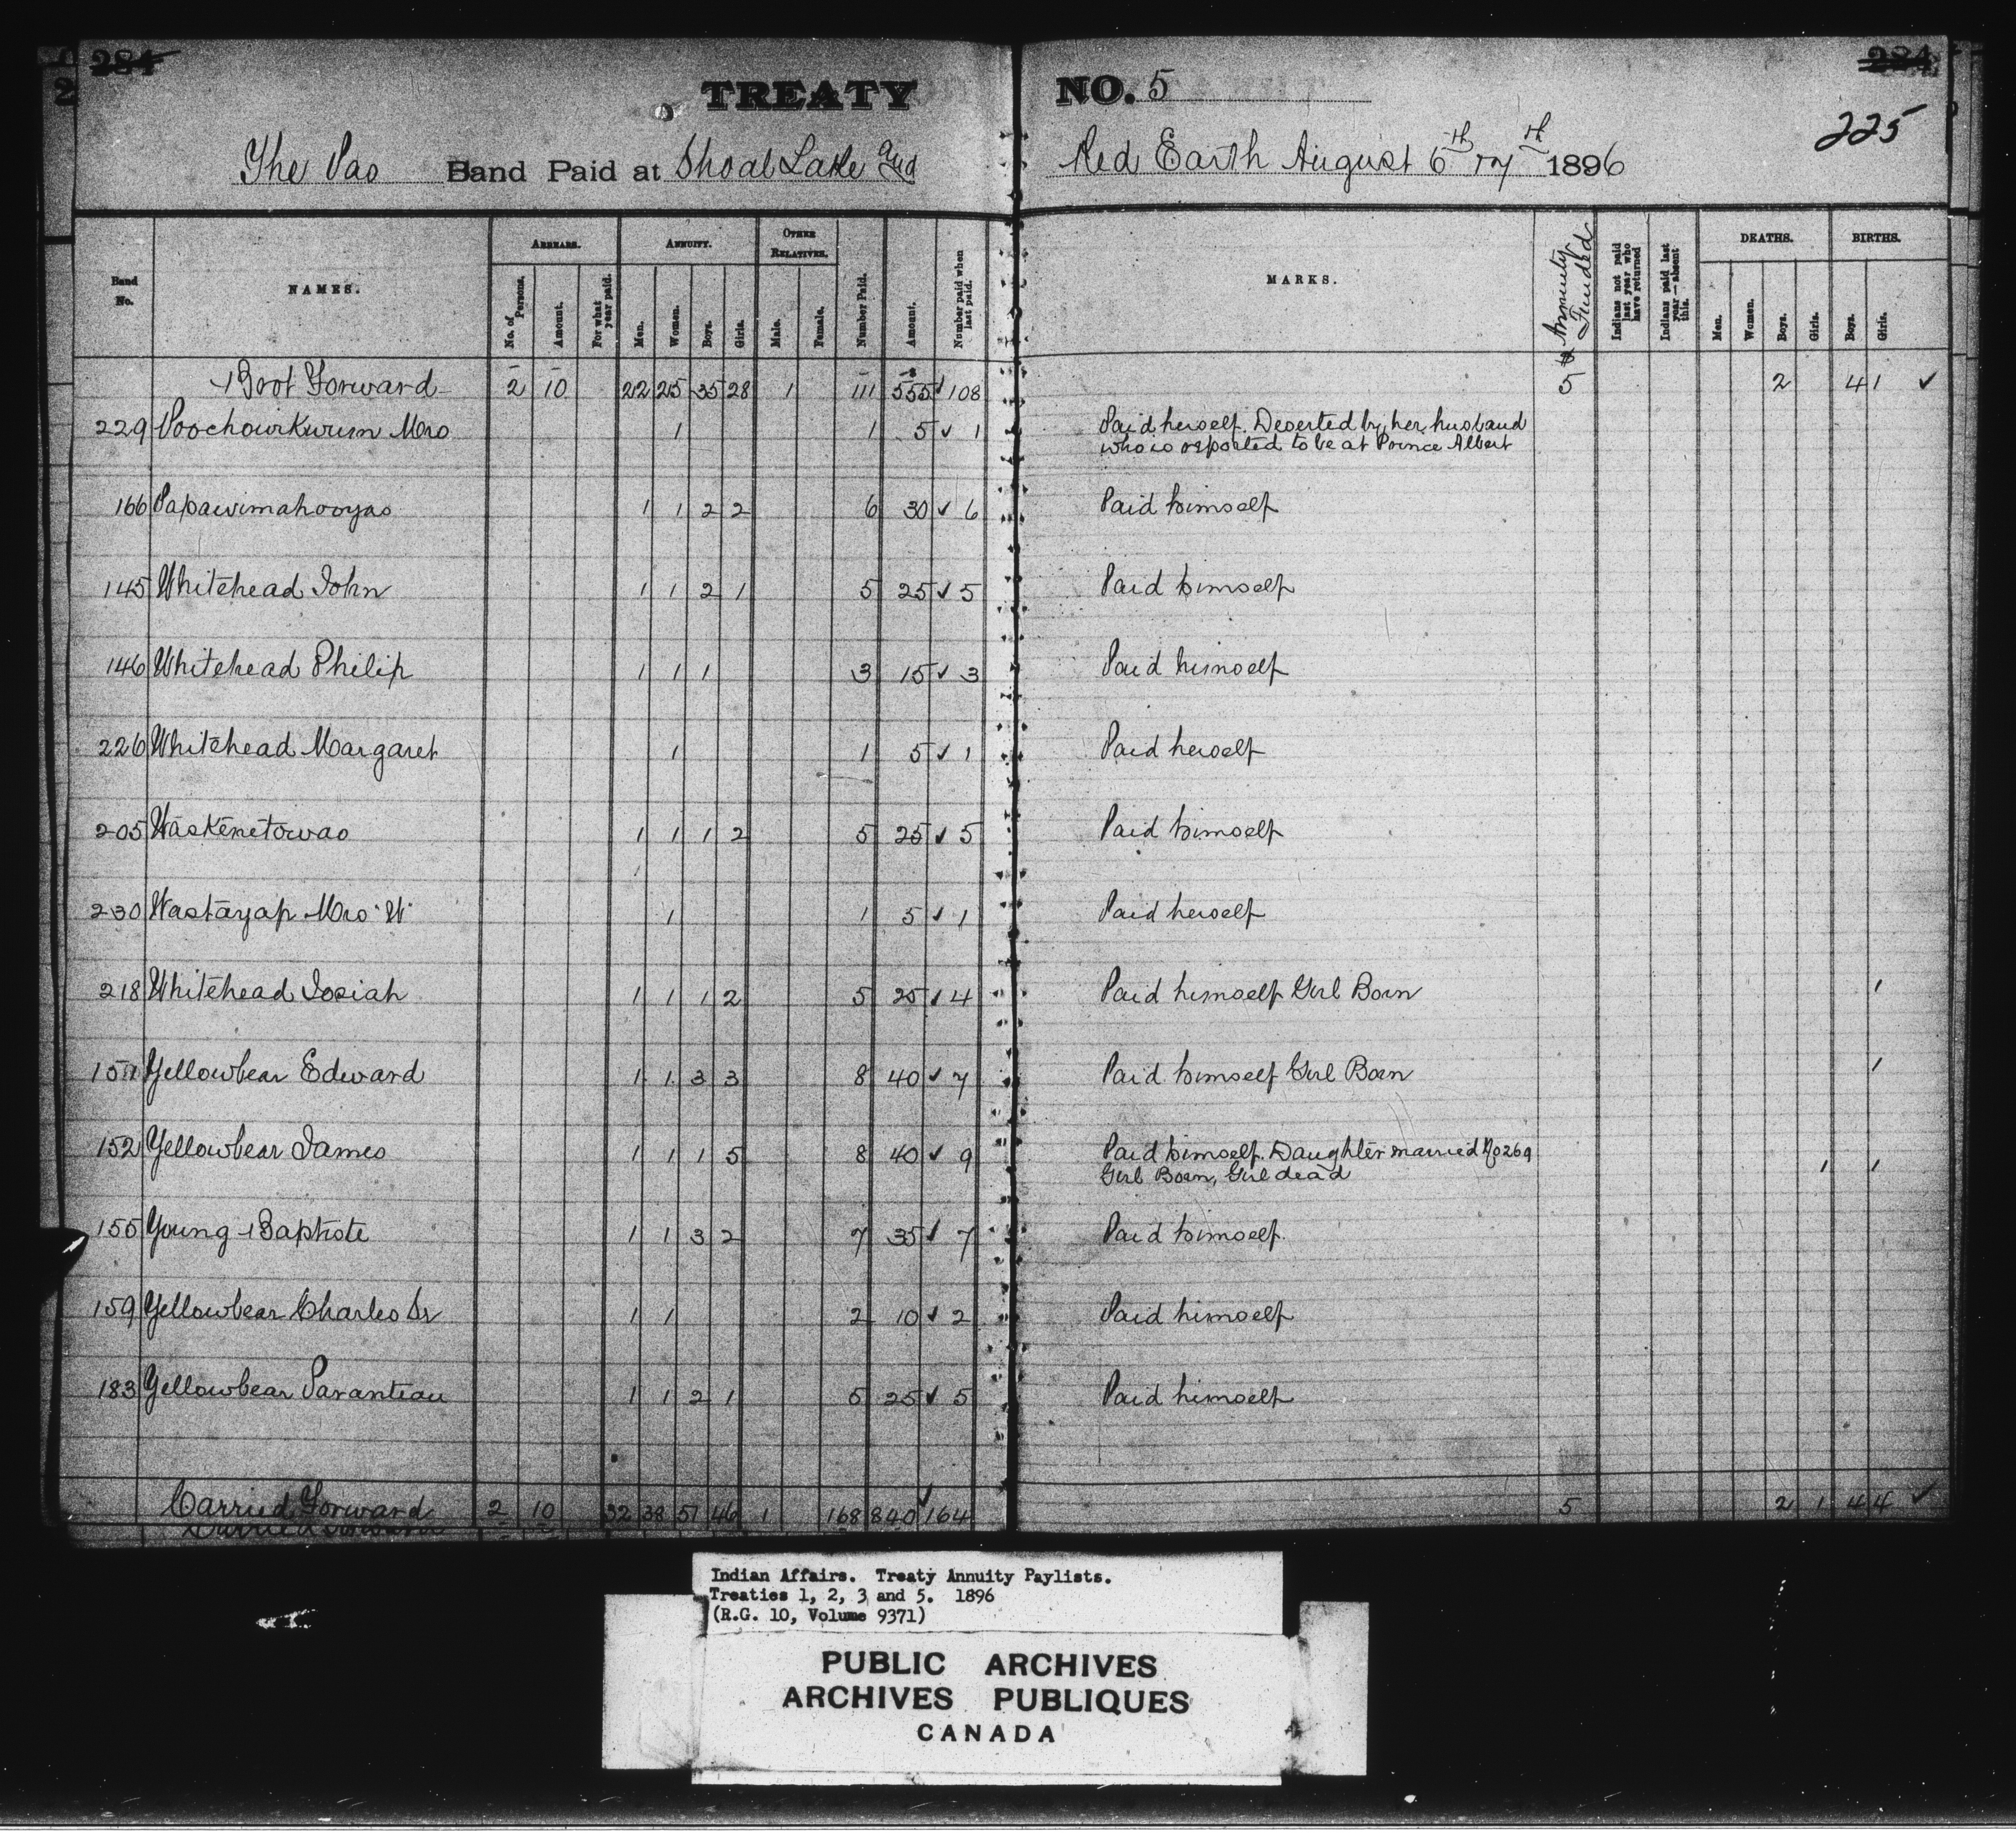 284 284
225
TREATY NO. 5
The Pas Band Paid at Shoal Lake and Red Earth August 6th 7th 1896
Band No. NAMES. ARREARS. ANNUITY. OTHER RELATIVES. Number Paid. Amount. Number paid when last paid. MARKS. Annuity Funded Indians not paid last year who have returned Indians paid last year—absent this. DEATHS. BIRTHS.
No. of Persons. Amount. For what year paid. Men. Women. Boys. Girls. Male. Female. Men. Women. Boys. Girls. Boys. Girls.
Brot Forward 2 10 22 25 35 28 1 111 555 108 5 2 4 1
229 Poochowkwum Mrs 1 1 5 1 Paid herself. Deserted by her husband
who is reported to be at Prince Albert
166 Papawimahooyas 1 1 2 2 6 30 6 Paid himself
145 Whitehead John 1 1 2 1 5 25 5 Paid himself
146 Whitehead Philip 1 1 1 3 15 3 Paid himself
226 Whitehead Margaret 1 1 5 1 Paid herself
205 Waskenetowas 1 1 1 2 5 25 5 Paid himself
230 Wastayap Mrs "W" 1 1 5 1 Paid herself
218 Whitehead Josiah 1 1 1 2 5 25 4 Paid himself Girl Born 1
Yellowbear Edward 1 1 3 3 8 40 7 Paid himself Girl Born 1
152 Yellowbear James 1 1 1 5 8 40 9 Paid himself. Daughter married No 269
Girl Born, Girl dead 1 1
155 Young Baptiste 1 1 3 2 7 35 7 Paid himself.
159 Yellowbear Charles Sr 1 1 2 10 2 Paid himself
183 Yellowbear Paranteau 1 1 2 1 5 25 5 Paid himself
Carried Forward 2 10 32 38 51 46 1 168 840 164 5 2 1 4 4
Indian Affairs. Treaty Annuity Paylists.
Treaties 1, 2, 3 and 5. 1896
(R.G. 10, Volume 9371)
PUBLIC ARCHIVES
ARCHIVES PUBLIQUES
CANADA